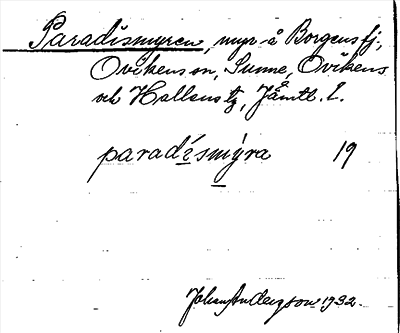 Paradismyren, myr å Borgens fj.,
Ovikens sn, Sunne, Ovikens
och Hallens tg, Jämtl. l.
paradi̱smy̱ra 19
Johan Anderson 1932.